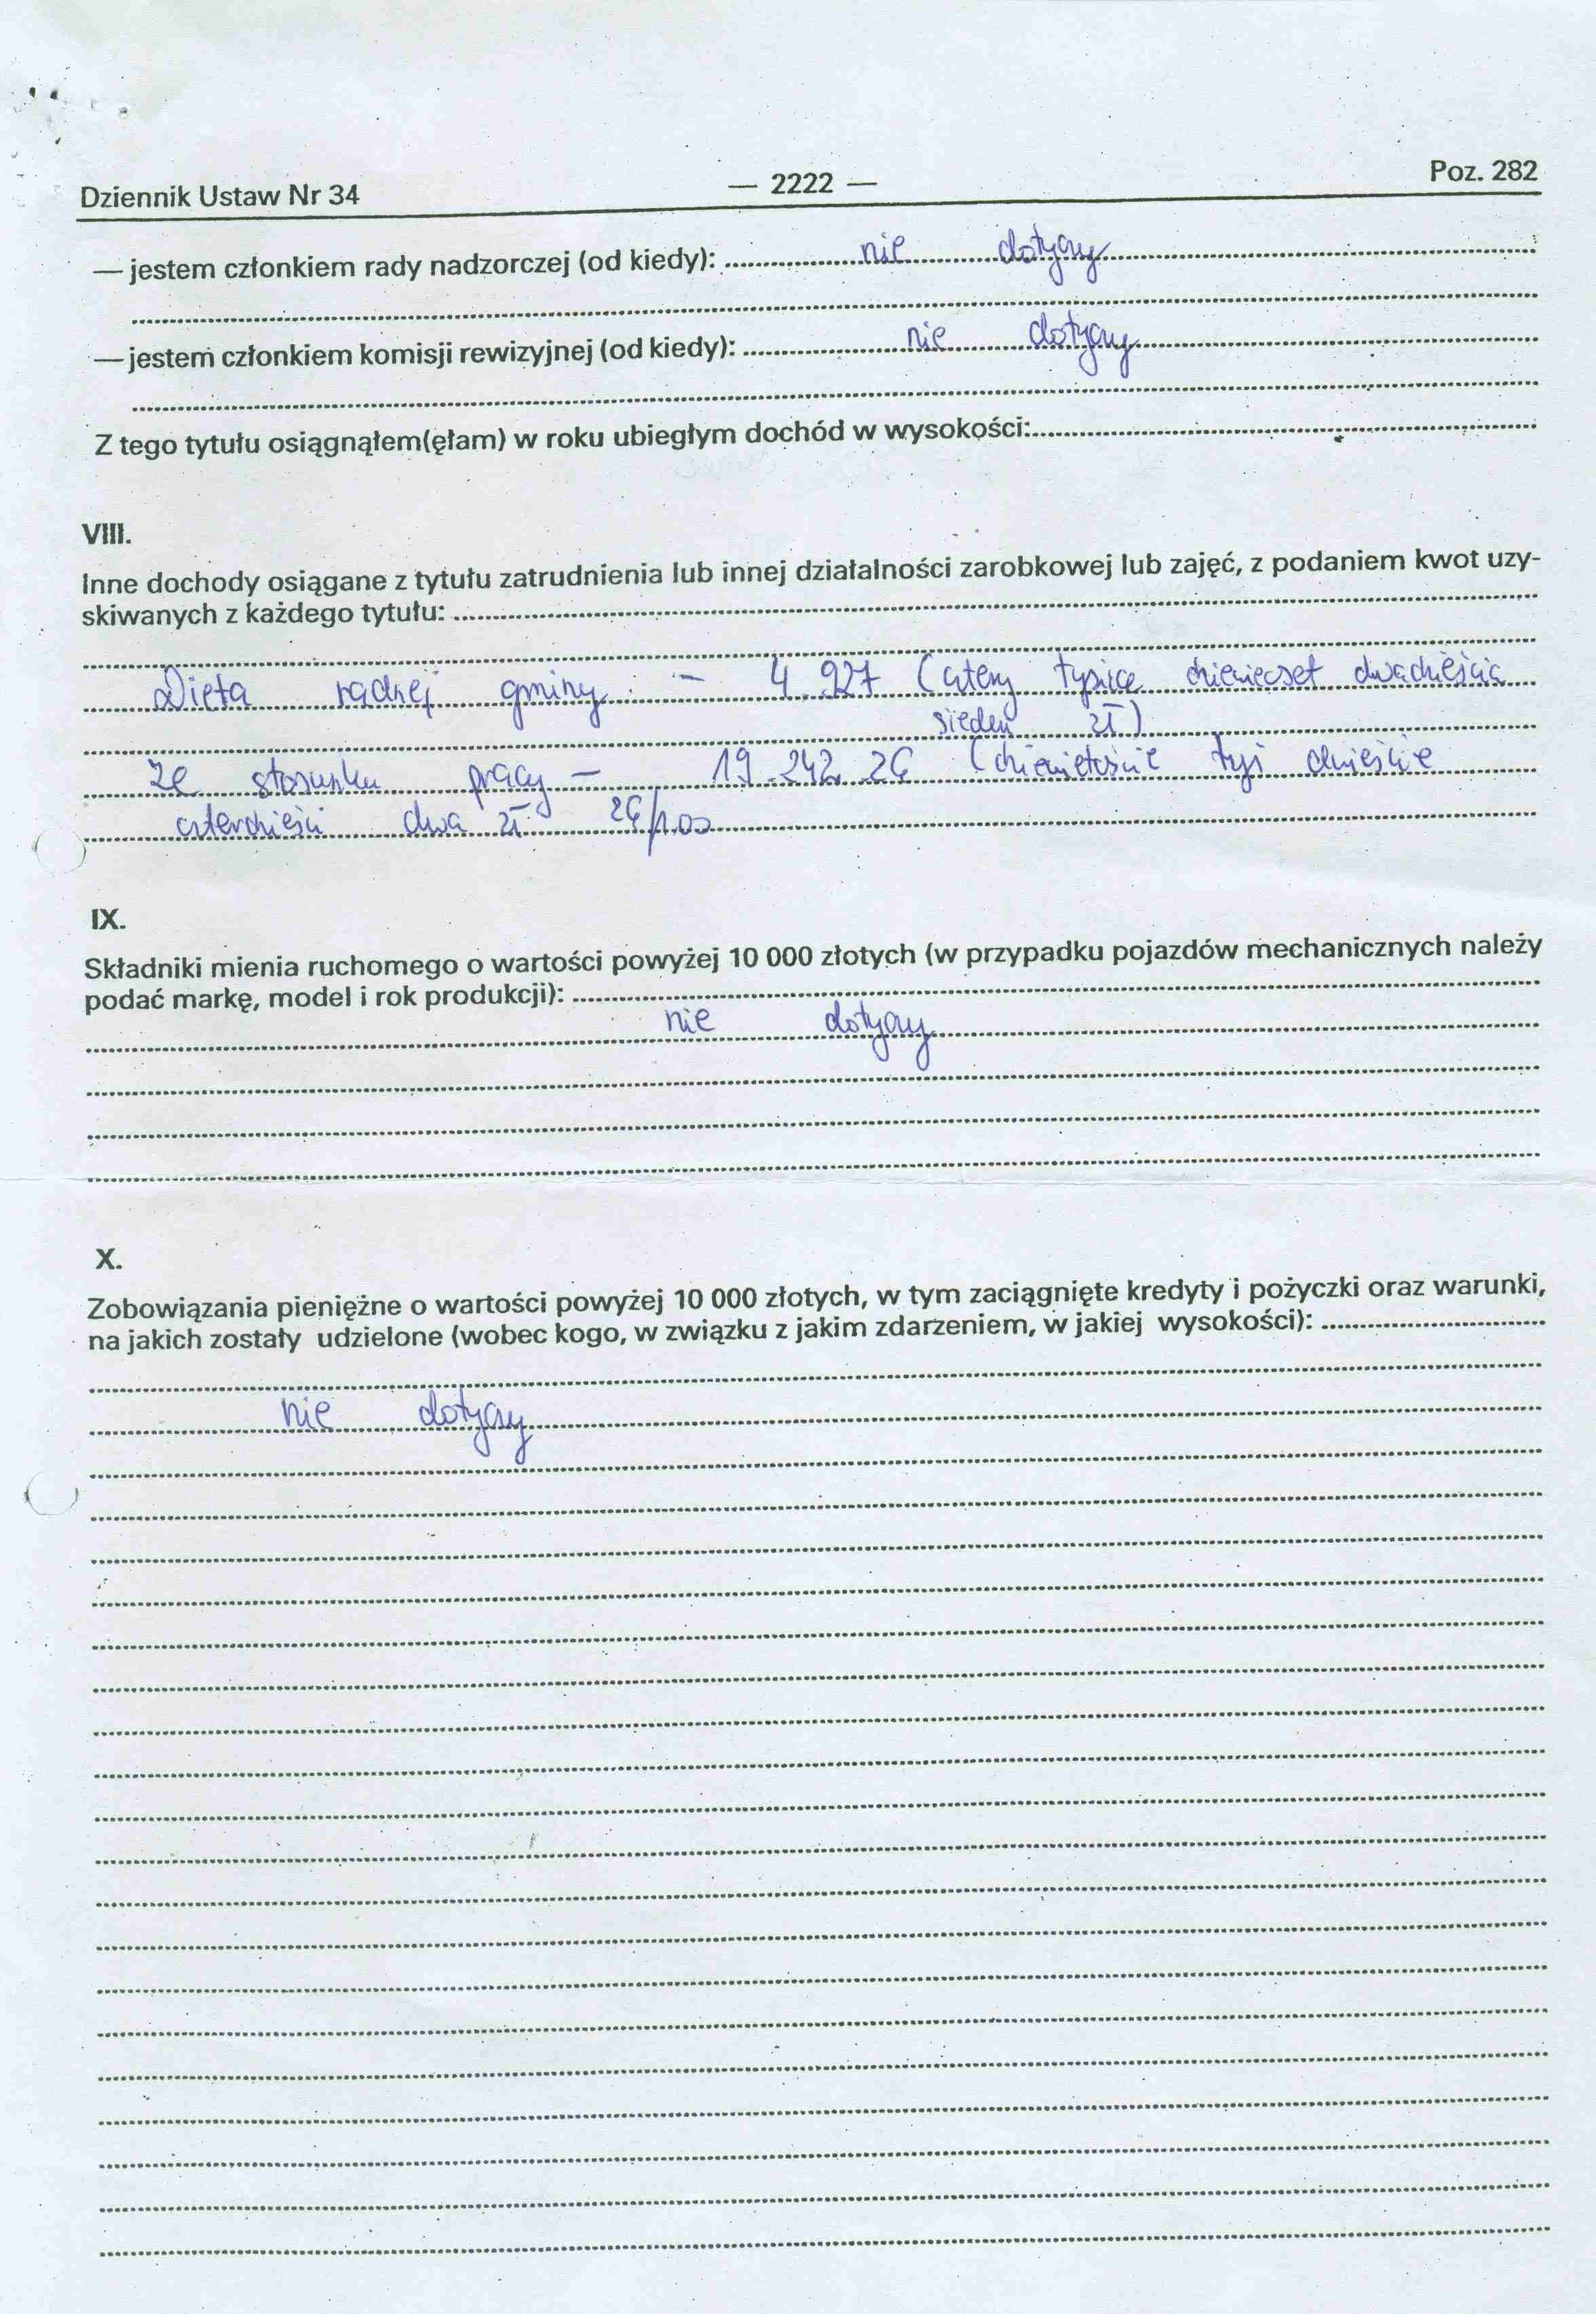 Dziennik Ustaw Nr 34 — 2222 — Poz. 282
— jestem członkiem rady nadzorczej (od kiedy): nie dotyczy
— jestem członkiem komisji rewizyjnej (od kiedy): nie dotyczy
Z tego tytułu osiągnąłem(ęłam) w roku ubiegłym dochód w wysokości:
VIII.
Inne dochody osiągane z tytułu zatrudnienia lub innej działalności zarobkowej lub zajęć, z podaniem kwot uzy-
skiwanych z każdego tytułu:
Dieta radnej gminy : – 4.927 (cztery tysiące dziewięćset dwadzieścia
siedem zł)
ze stosunku pracy – 19.242.26 (dziewiętnaście tyś dwieście
czterdzieści dwa zł 26/100
IX.
Składniki mienia ruchomego o wartości powyżej 10 000 złotych (w przypadku pojazdów mechanicznych należy
podać markę, model i rok produkcji):
nie dotyczy
X.
Zobowiązania pieniężne o wartości powyżej 10 000 złotych, w tym zaciągnięte kredyty i pożyczki oraz warunki,
na jakich zostały udzielone (wobec kogo, w związku z jakim zdarzeniem, w jakiej wysokości):
nie dotyczy